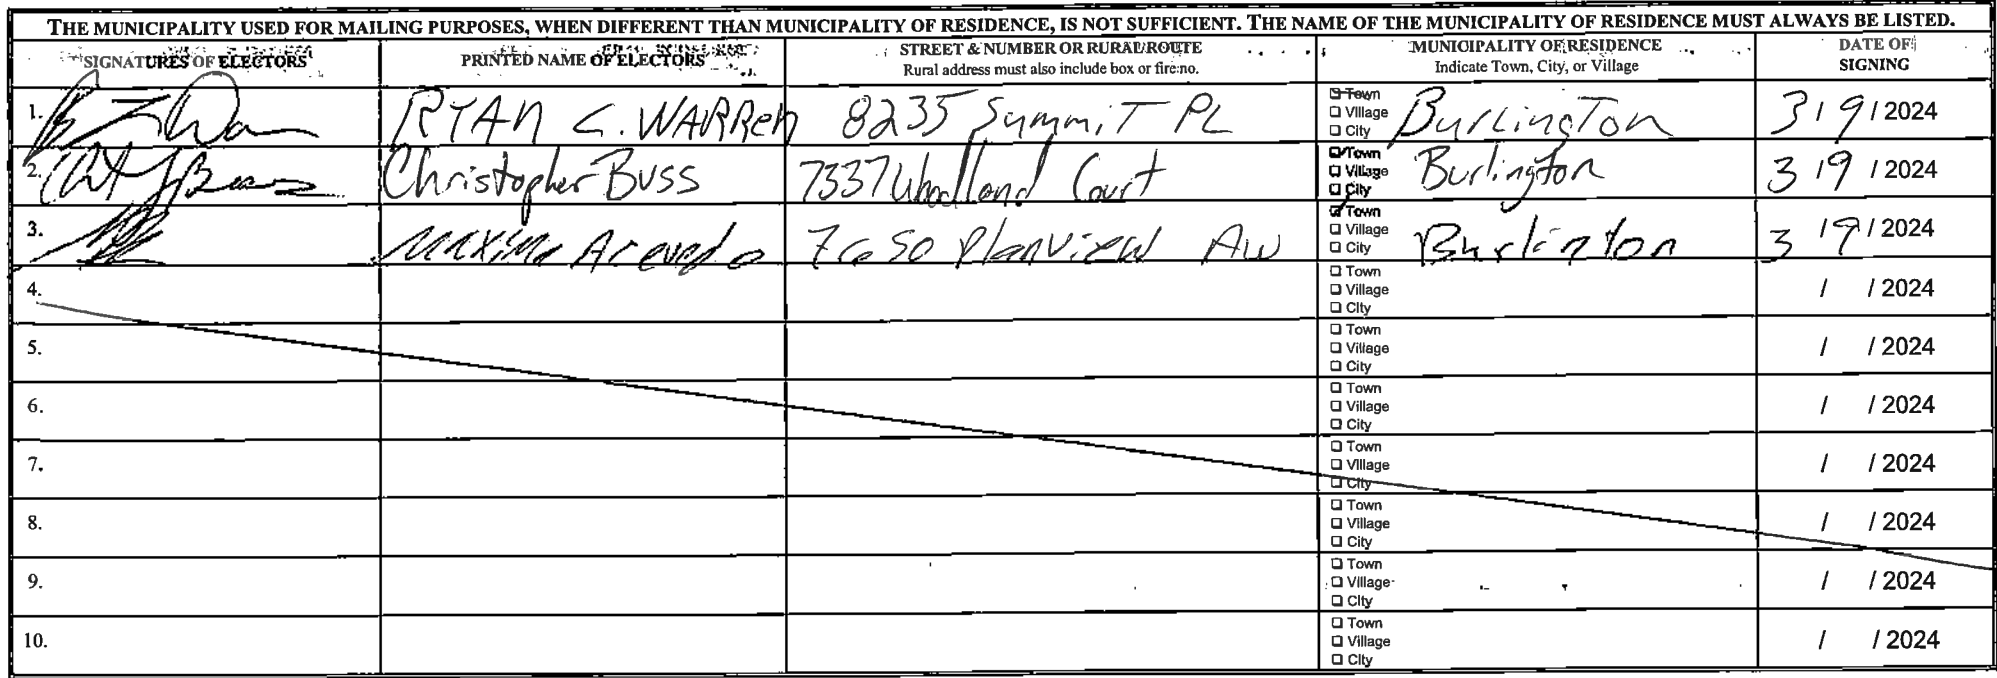 THE MUNICIPALITY USED FOR MAILING PURPOSES, WHEN DIFFERENT THAN MUNICIPALITY OF RESIDENCE, IS NOT SUFFICIENT. THE NAME OF THE MUNICIPALITY OF RESIDENCE MUST ALWAYS BE LISTED.
SIGNATURES OF ELECTORS
PRINTED NAME OF ELECTORS
STREET & NUMBER OR RURAL ROUTE
Rural address must also include box or fire no.
MUNICIPALITY OF RESIDENCE
Indicate Town, City, or Village
DATE OF
SIGNING
1. RYAN C. WARREN 8235 Summit PL
Town
Village
City
Burlington 3/9/2024
2. Christopher Buss 7337 Woodland Court
Town
Village
City
Burlington 3/9/2024
3. Acevedo
Town
Village
City
Burlington 3/9/2024
4.
Town
Village
City
/ / 2024
5.
Town
Village
City
/ / 2024
6.
Town
Village
City
/ / 2024
7.
Town
Village
City
/ / 2024
8.
Town
Village
City
/ / 2024
9.
Town
Village
City
/ / 2024
10.
Town
Village
City
/ / 2024